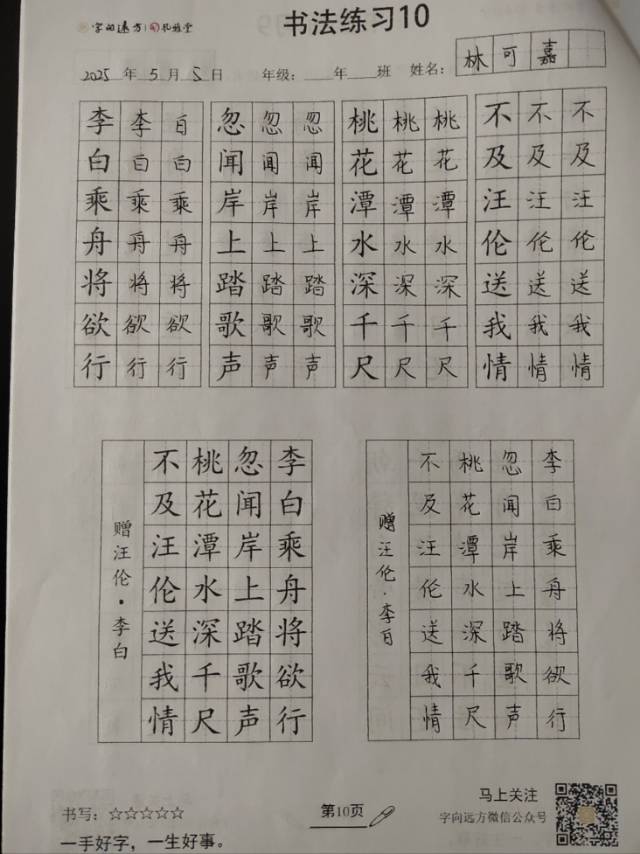 字向远方 孔雅堂
书法练习10
2025年5月5日 年级:__年__班 姓名: 林可嘉
李白乘舟将欲行
李白乘舟将欲行
自白乘舟将欲行
忽闻岸上踏歌声
忽闻岸上踏歌声
忽闻岸上踏歌声
桃花潭水深千尺
桃花潭水深千尺
桃花潭水深千尺
不及汪伦送我情
不及汪伦送我情
不及汪伦送我情
李白乘舟将欲行
忽闻岸上踏歌声
桃花潭水深千尺
不及汪伦送我情
赠汪伦·李白
李白乘舟将欲行
忽闻岸上踏歌声
桃花潭水深千尺
不及汪伦送我情
赠汪伦·李百
书写:☆☆☆☆☆
一手好字，一生好事。
第10页
马上关注
字向远方微信公众号